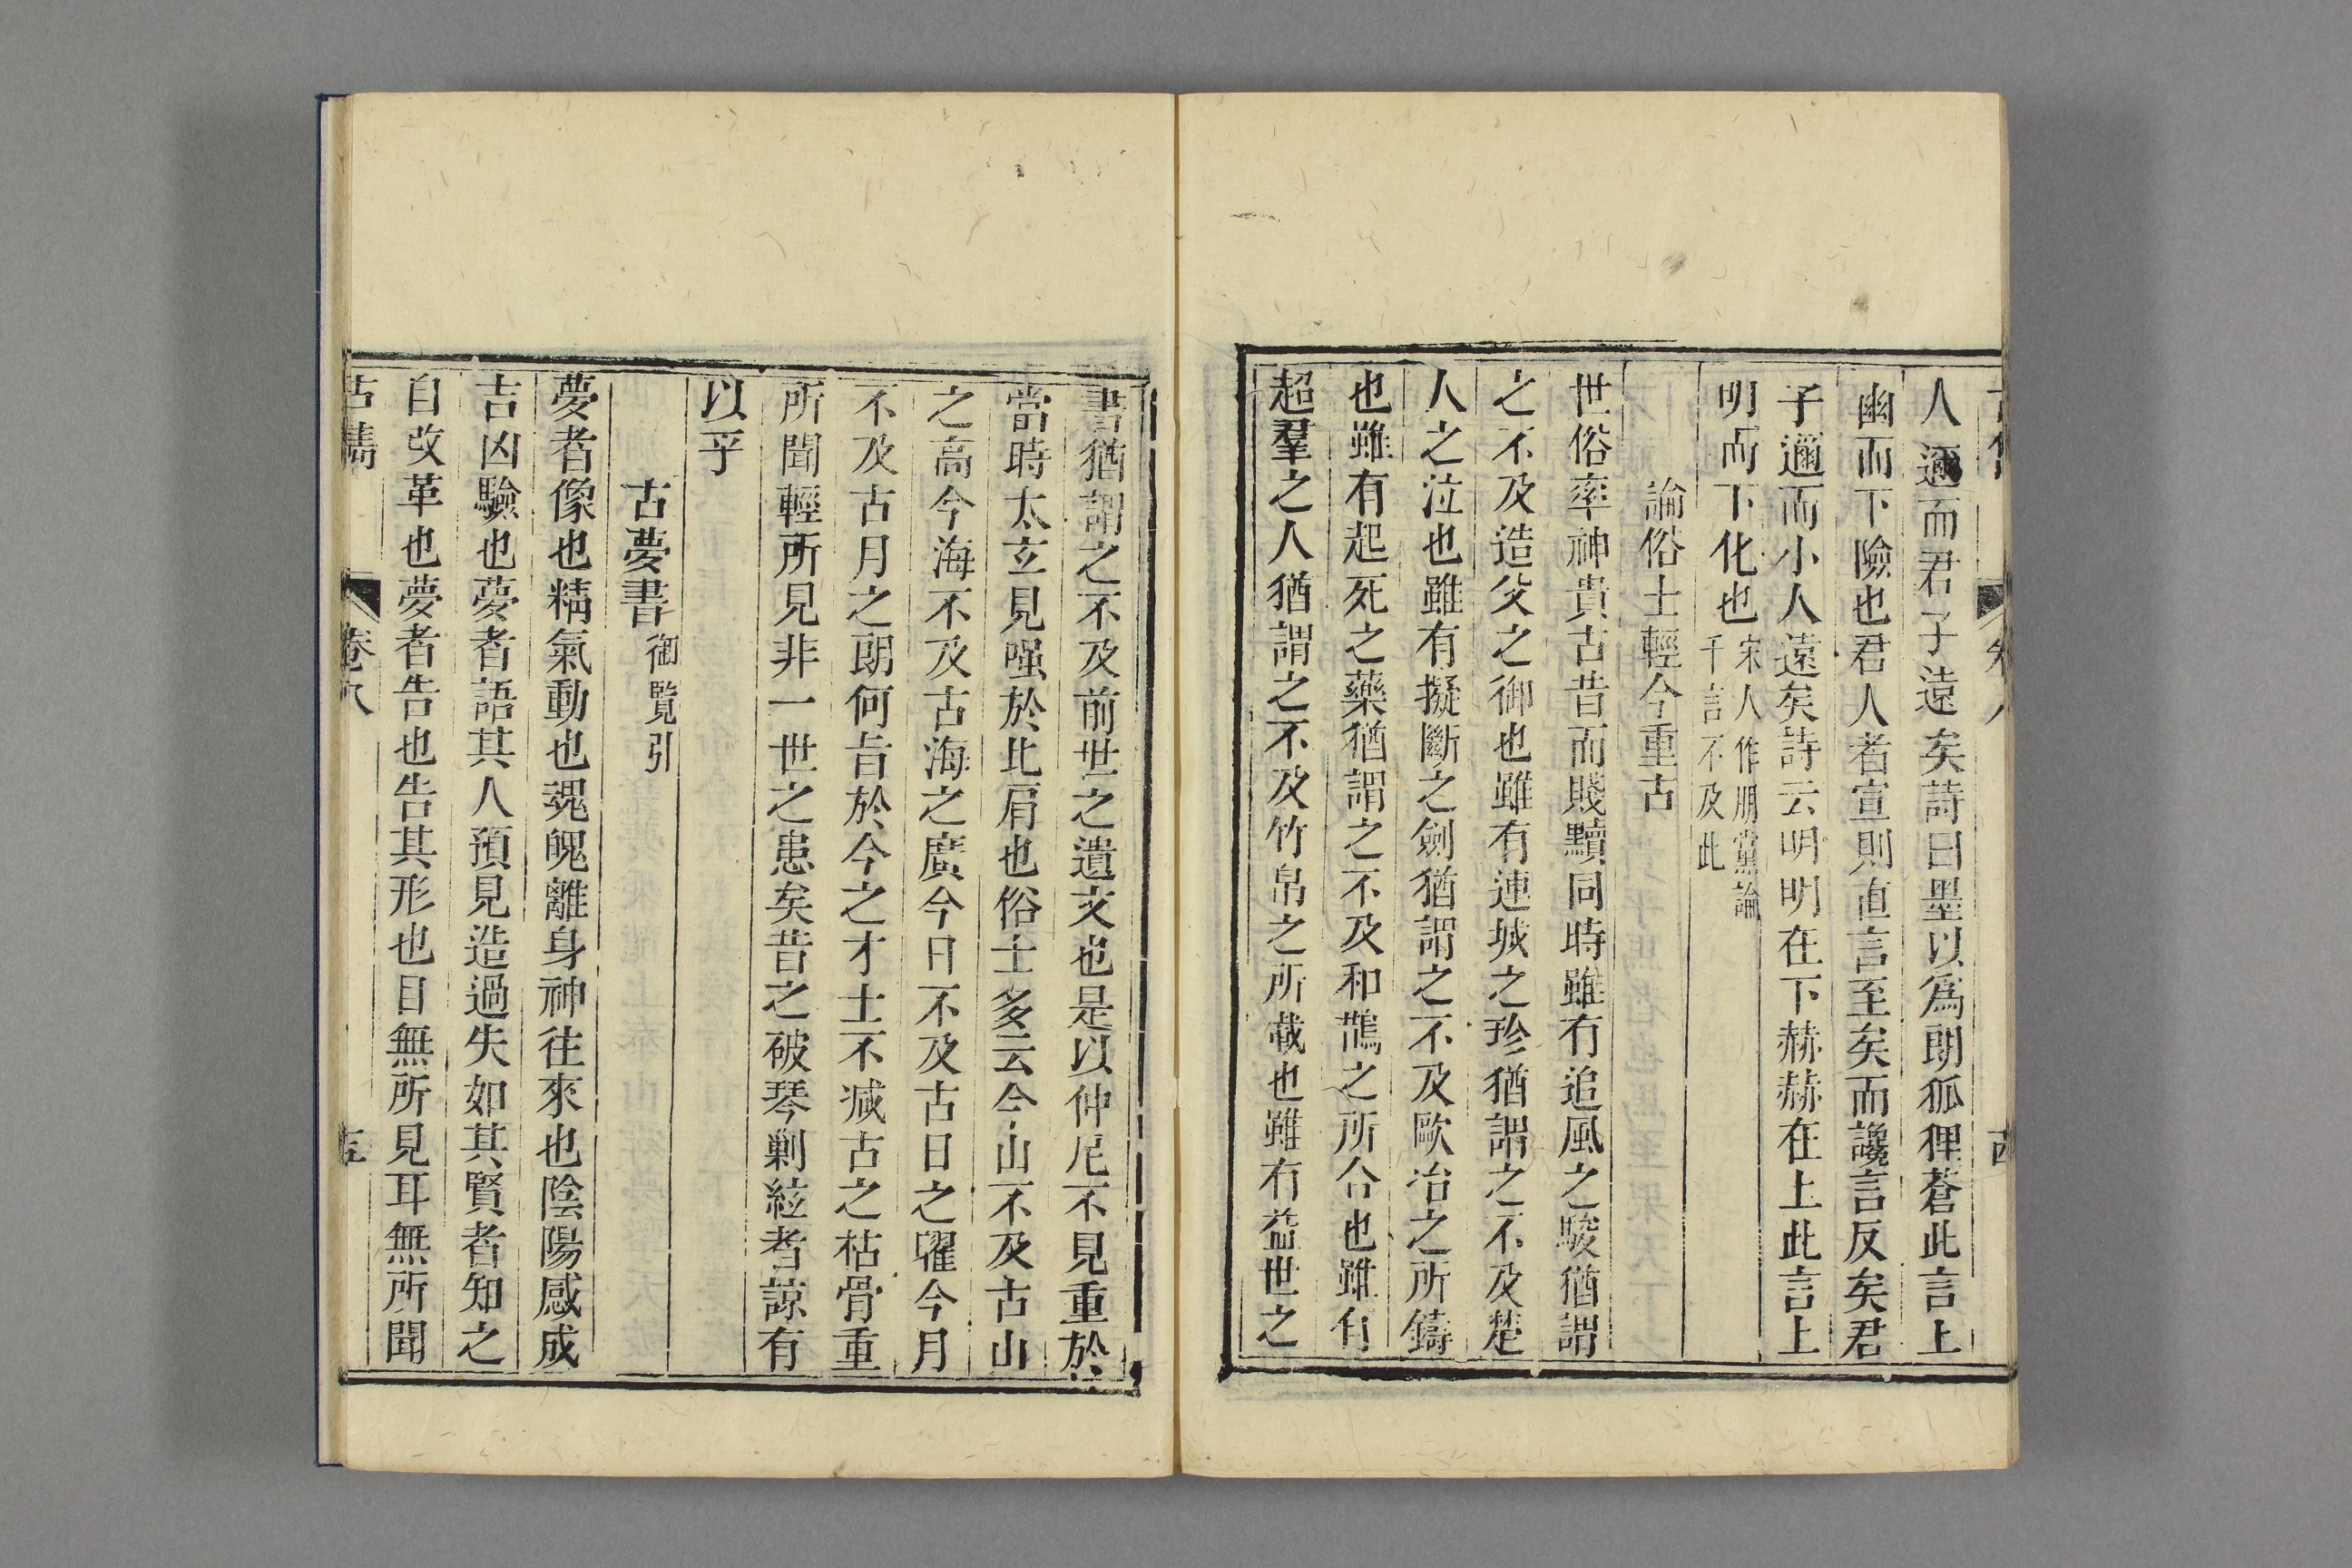 人邇而君子遠矣詩曰墨以爲朗狐狸蒼此言上
幽而下險也君人者宣則直言至矣而讒言反矣君
子邇而小人遠矣詩云明明在下赫赫在上此言上
明而下化也宋人作朋黨論
千言不及此
論俗士輕今重古
世俗率神貴古昔而賤黷同時雖有追風之駿猶謂
之不及造父之御也雖有連城之珍猶謂之不及楚
人之泣也雖有擬斷之劍猶謂之不及歐冶之所鑄
也雖有起死之藥猶謂之不及和鵲之所合也雖有
超羣之人猶謂之不及竹帛之所載也雖有益世之
書猶謂之不及前世之遺文也是以仲尼不見重於
當時太玄見嗤於比肩也俗士多云今山不及古山
之高今海不及古海之廣今日不及古日之曜今月
不及古月之朗何肯於今之才士不減古之枯骨重
所聞輕所見非一世之患矣昔之破琴剿絃者諒有
以乎
古夢書御覽引
夢者像也精氣動也魂魄離身神往來也陰陽感成
吉凶驗也夢者語其人預見造過失如其賢者知之
自改革也夢者告也告其形也目無所見耳無所聞
卷八